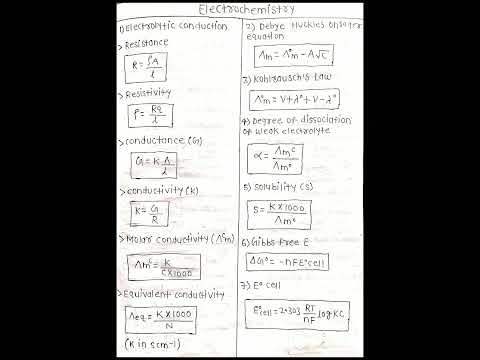 Electrochemistry
1) Electrolytic conduction
> Resistance
R = ρA / l
> Resistivity
ρ = Rq / l
> conductance (G)
G = K A / l
> conductivity (K)
K = G / R
> Molar conductivity (Λcm)
Λmc = K / C×1000
> Equivalent conductivity
Λeq = K×1000 / N
(K in scm-1)
2) Debye Huckles onsager
equation
Λm = Λ°m - A√c
3) Kohlrausch's Law
Λ°m = V+λ° + V-λ°
4) Degree of dissociation
of weak electrolyte
α = Λmc / Λm°
5) Solubility (S)
S = K×1000 / Λm°
6) Gibbs Free E
ΔG° = -nFE°cell
7) E° cell
E°cell = 2.303 RT / nF log KC